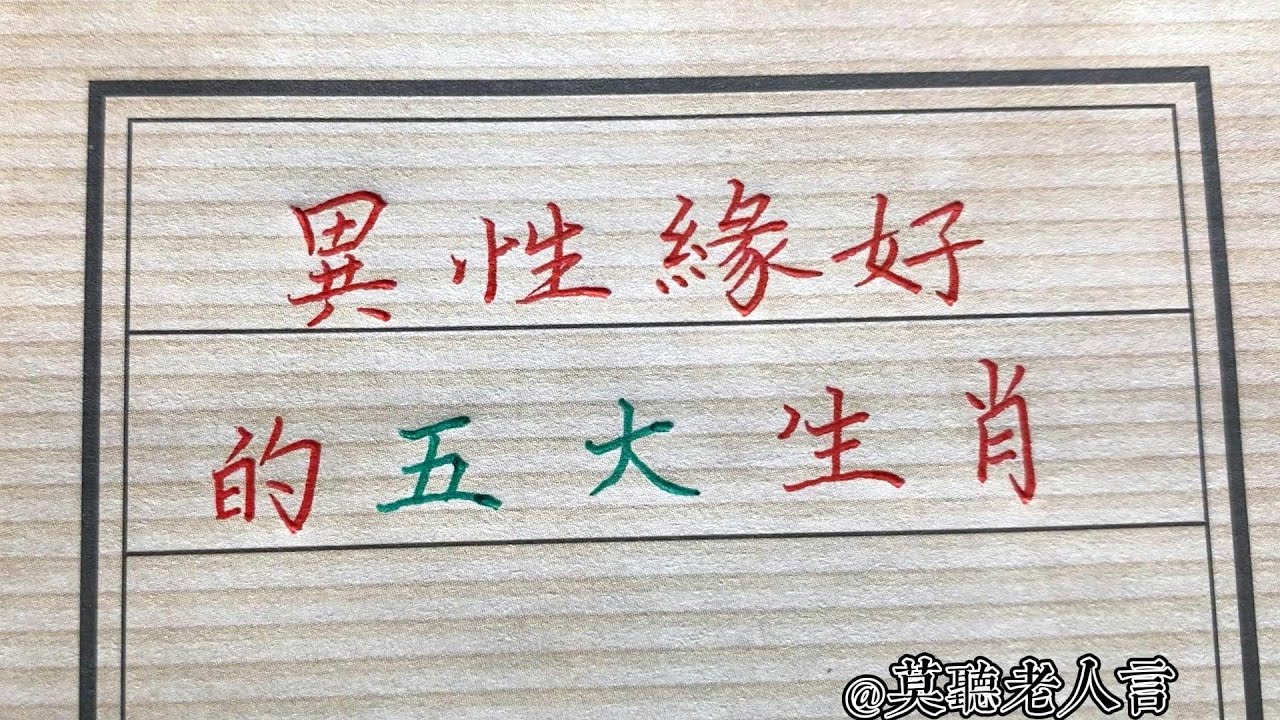 異性緣好
的五大生肖
@莫聽老人言